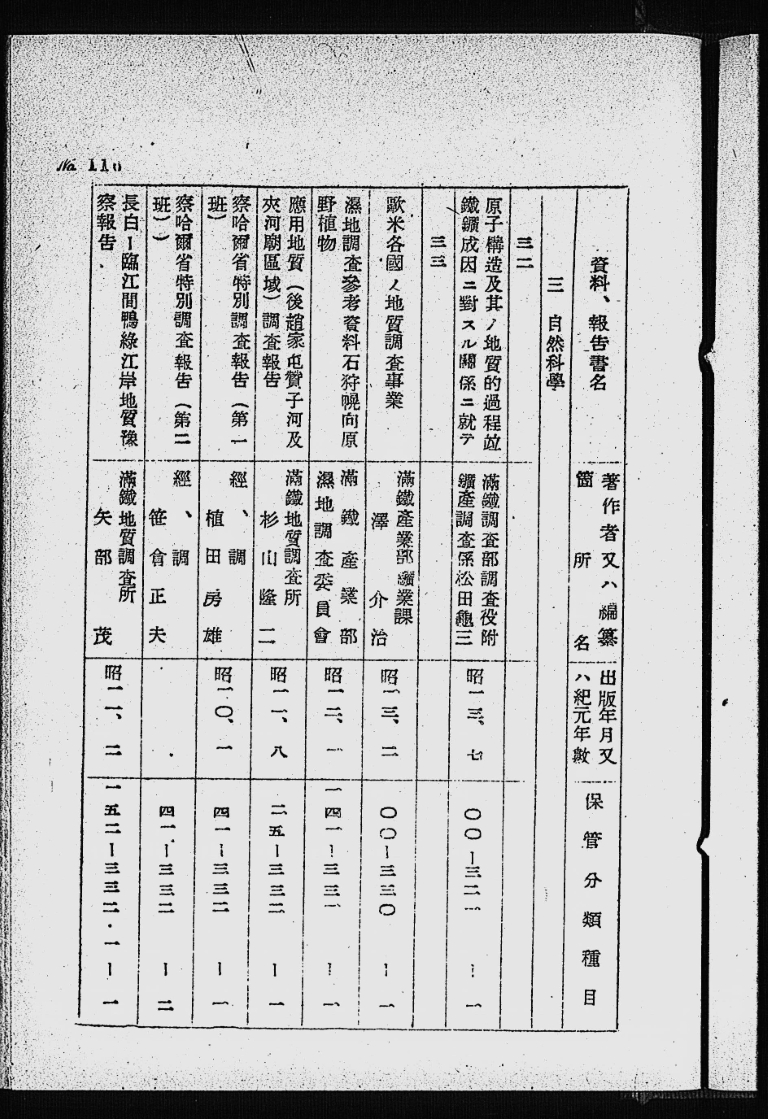 No. 110
資料、報告書名
著作者又ハ編纂
箇所名
出版年月又
ハ紀元年數
保管分類種目
三 自然科學
三二
原子構造及其ノ地質的過程竝
鐵鑛成因ニ對スル關係ニ就テ
滿鐵調査部調査役附
鑛產調査係松田龜三
昭一三、七
〇〇-三二一 -一
三三
歐米各國ノ地質調査事業
滿鐵產業部鑛業課
澤介治
昭一三、二
〇〇-三三〇 -一
濕地調査參考資料石狩幌向原
野植物
滿鐵產業部
濕地調査委員會
昭一二、一
一四一-三三一 -一
應用地質(後趙家屯贊子河及
夾河廟區域)調査報告
滿鐵地質調査所
杉山隆二
昭一一、八
二五-三三二 -一
察哈爾省特別調査報告(第一
班)
經、調
植田房雄
昭一〇、一
四一-三三二 -一
察哈爾省特別調査報告(第二
班)
經、調
笹倉正夫
四一-三三二 -二
長白-臨江間鴨綠江岸地質豫
察報告
滿鐵地質調査所
矢部茂
昭一一、二
一五二-三三二・一-一